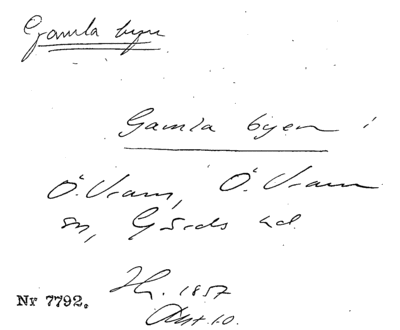 Gamla byn
Gamla byen i
Ö. Vram, Ö. Vram
sn, Gärds hd.
Nr 7792.
1857